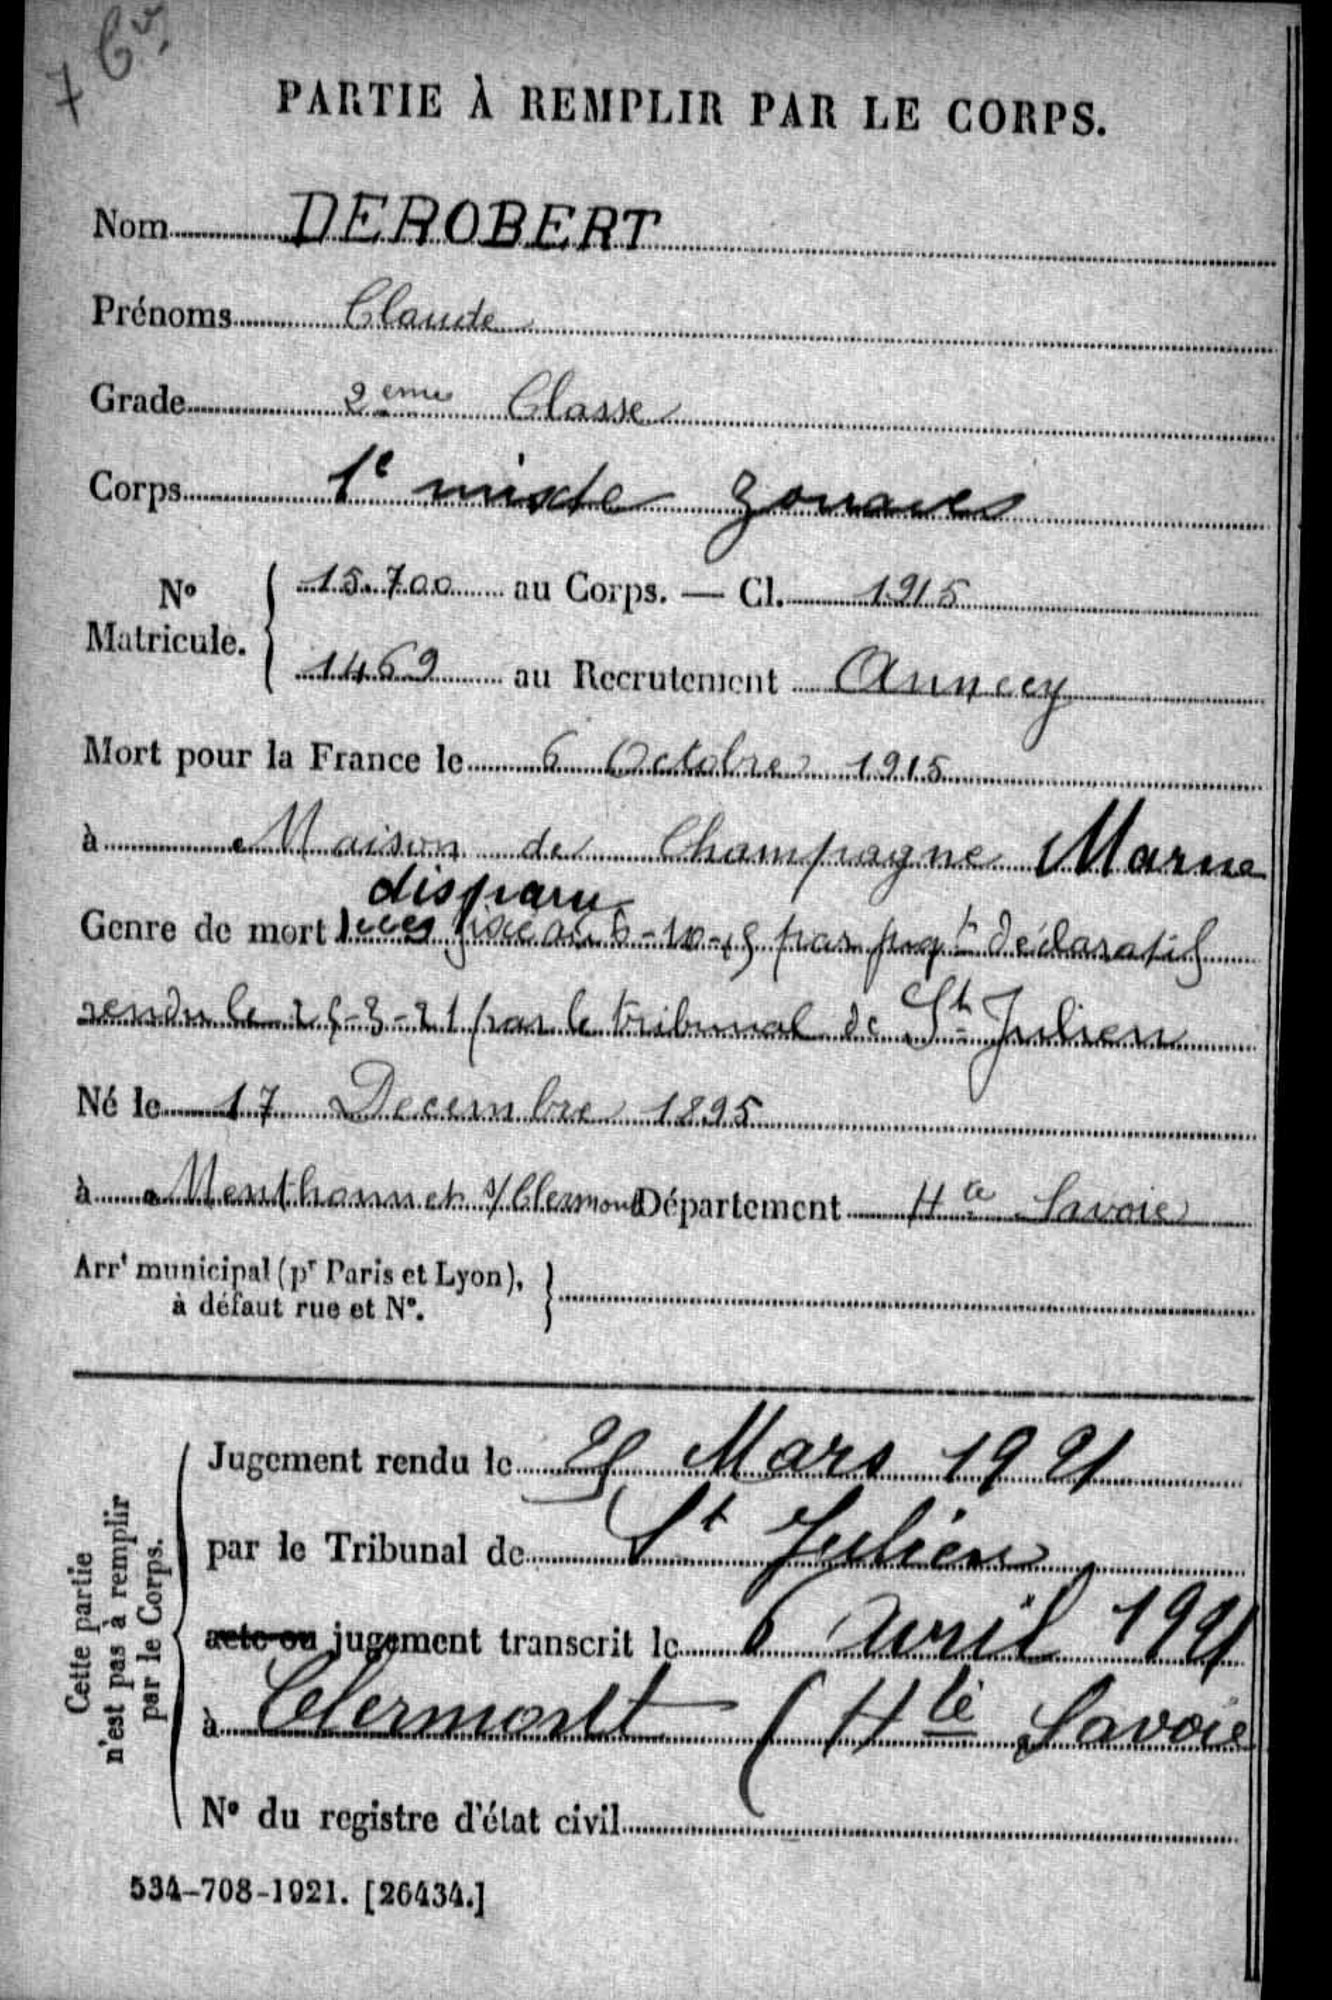 7 Cv.
PARTIE À REMPLIR PAR LE CORPS.
Nom DEROBERT
Prénoms Claude
Grade 2eme Classe
Corps 1e mixte zouaves
No Matricule. { 15.700 au Corps. — Cl. 1915
1469 au Recrutement Annecy
Mort pour la France le 6 Octobre 1915
à Maison de Champagne Marne
disparu
Genre de mort Décès fixé au 6-10-15 par jugt déclaratif
rendu le 25-3-21 par le tribunal de St Julien
Né le 17 Decembre 1895
à Menthonnex s/ Clermont Département Hte Savoie
Arrt municipal (pr Paris et Lyon),
à défaut rue et No. }
Cette partie
n'est pas à remplir
par le Corps.
Jugement rendu le 25 Mars 1921
par le Tribunal de St Julien
acte ou jugement transcrit le 6 avril 1921
à Clermont (Hte Savoie
No du registre d'état civil
534-708-1921. [26434.]